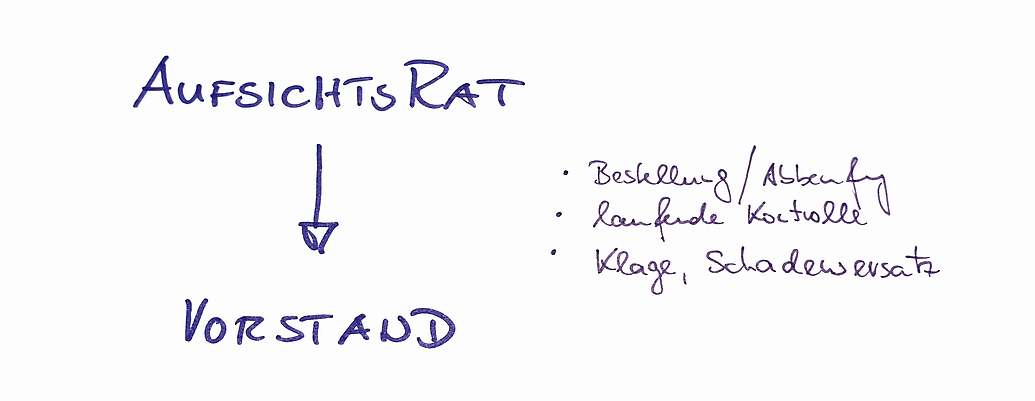 AUFSICHTSRAT
· Bestellung / Abberufung
· laufende Kontrolle
· Klage, Schadensersatz
VORSTAND